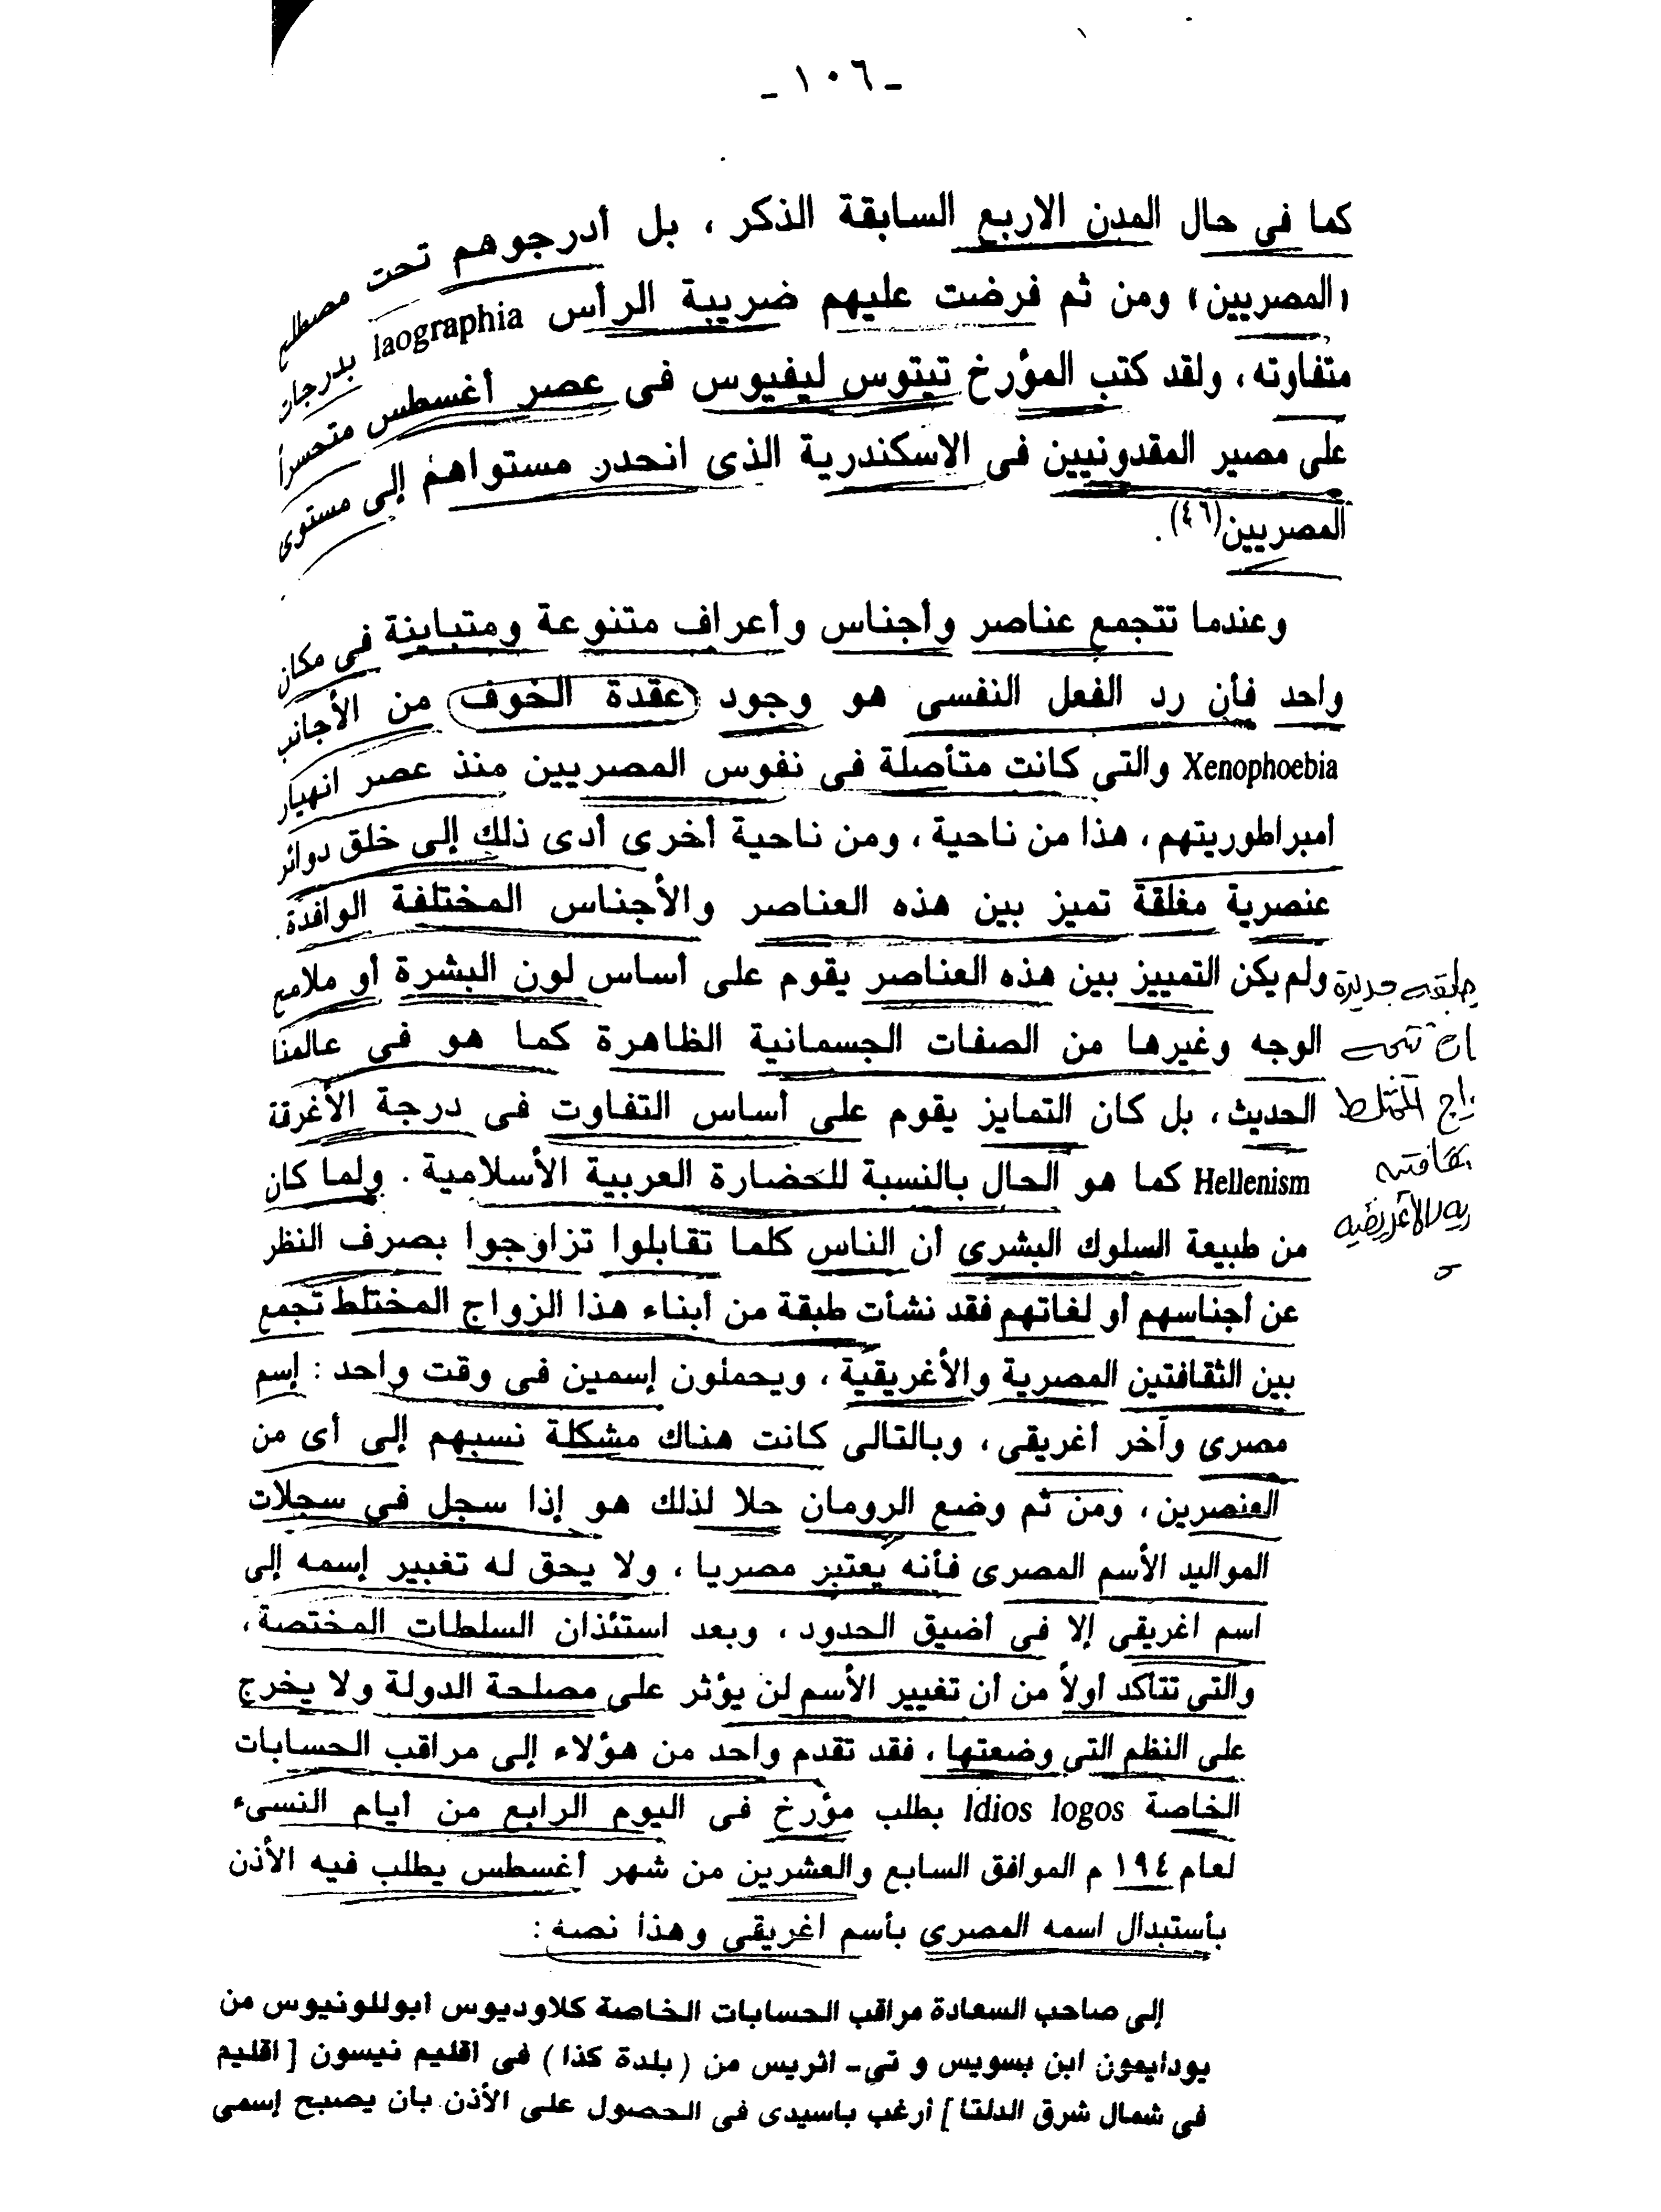 - ١٠٦ -
كما فى حال المدن الاربع السابقة الذكر ، بل أدرجوهم تحت مصطلح
«المصريين» ومن ثم فرضت عليهم ضريبة الرأس laographia بدرجات
متفاوته ، ولقد كتب المؤرخ تيتوس ليفيوس فى عصر أغسطس متحسراً
على مصير المقدونيين فى الاسكندرية الذى انحدر مستواهم إلى مستوى
المصريين(٤٦) .
وعندما تتجمع عناصر وأجناس وأعراف متنوعة ومتباينة فى مكان
واحد فأن رد الفعل النفسى هو وجود عقدة الخوف من الأجانب
Xenophoebia والتى كانت متأصلة فى نفوس المصريين منذ عصر انهيار
أمبراطوريتهم ، هذا من ناحية ، ومن ناحية أخرى أدى ذلك إلى خلق دوائر
عنصرية مغلقة تميز بين هذه العناصر والأجناس المختلفة الوافدة .
ولم يكن التمييز بين هذه العناصر يقوم على أساس لون البشرة أو ملامح
الوجه وغيرها من الصفات الجسمانية الظاهرة كما هو فى عالمنا
الحديث ، بل كان التمايز يقوم على أساس التفاوت فى درجة الأغرقة
Hellenism كما هو الحال بالنسبة للحضارة العربية الأسلامية . ولما كان
من طبيعة السلوك البشرى أن الناس كلما تقابلوا تزاوجوا بصرف النظر
عن أجناسهم أو لغاتهم فقد نشأت طبقة من أبناء هذا الزواج المختلط تجمع
بين الثقافتين المصرية والأغريقية ، ويحملون إسمين فى وقت واحد : إسم
مصرى وآخر أغريقى ، وبالتالى كانت هناك مشكلة نسبهم إلى أى من
العنصرين ، ومن ثم وضع الرومان حلا لذلك هو إذا سجل فى سجلات
المواليد الأسم المصرى فأنه يعتبر مصريا ، ولا يحق له تغيير إسمه إلى
اسم اغريقى إلا فى أضيق الحدود ، وبعد استئذان السلطات المختصة ،
والتى تتأكد أولاً من أن تغيير الأسم لن يؤثر على مصلحة الدولة ولا يخرج
على النظم التى وضعتها ، فقد تقدم واحد من هؤلاء إلى مراقب الحسابات
الخاصة Idios logos بطلب مؤرخ فى اليوم الرابع من أيام النسىء
لعام ١٩٤ م الموافق السابع والعشرين من شهر أغسطس يطلب فيه الأذن
بأستبدال اسمه المصرى بأسم اغريقى وهذا نصه :
إلى صاحب السعادة مراقب الحسابات الخاصة كلاوديوس أبوللونيوس من
يودايمون ابن بسويس و تى- اثريس من (بلدة كذا) فى اقليم نيسون [ اقليم
فى شمال شرق الدلتا ] أرغب ياسيدى فى الحصول على الأذن بان يصبح إسمى
جديدة
المختلط